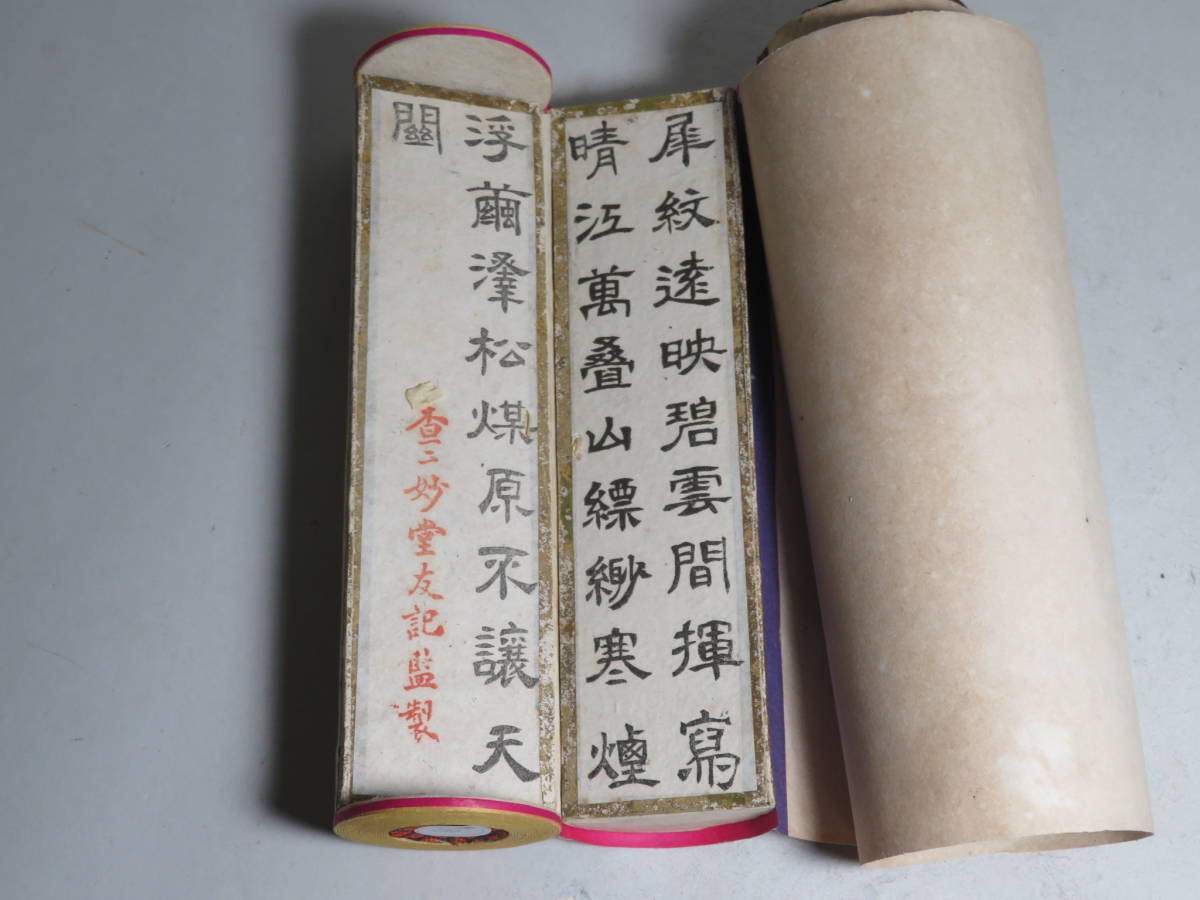 犀紋遠映碧雲間揮寫
晴江萬疊山縹緲寒煙
浮繭澤松煤原不讓天
關
查二妙堂友記監製